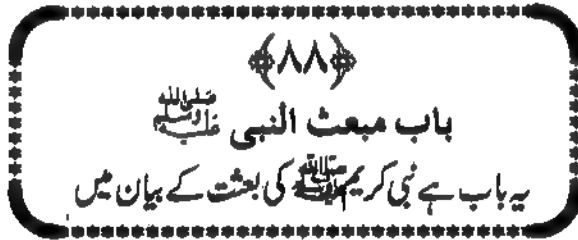 ﴿۸۸﴾
باب مبعث النبی ﷺ
یہ باب ہے نبی کریم ﷺ کی بعثت کے بیان میں